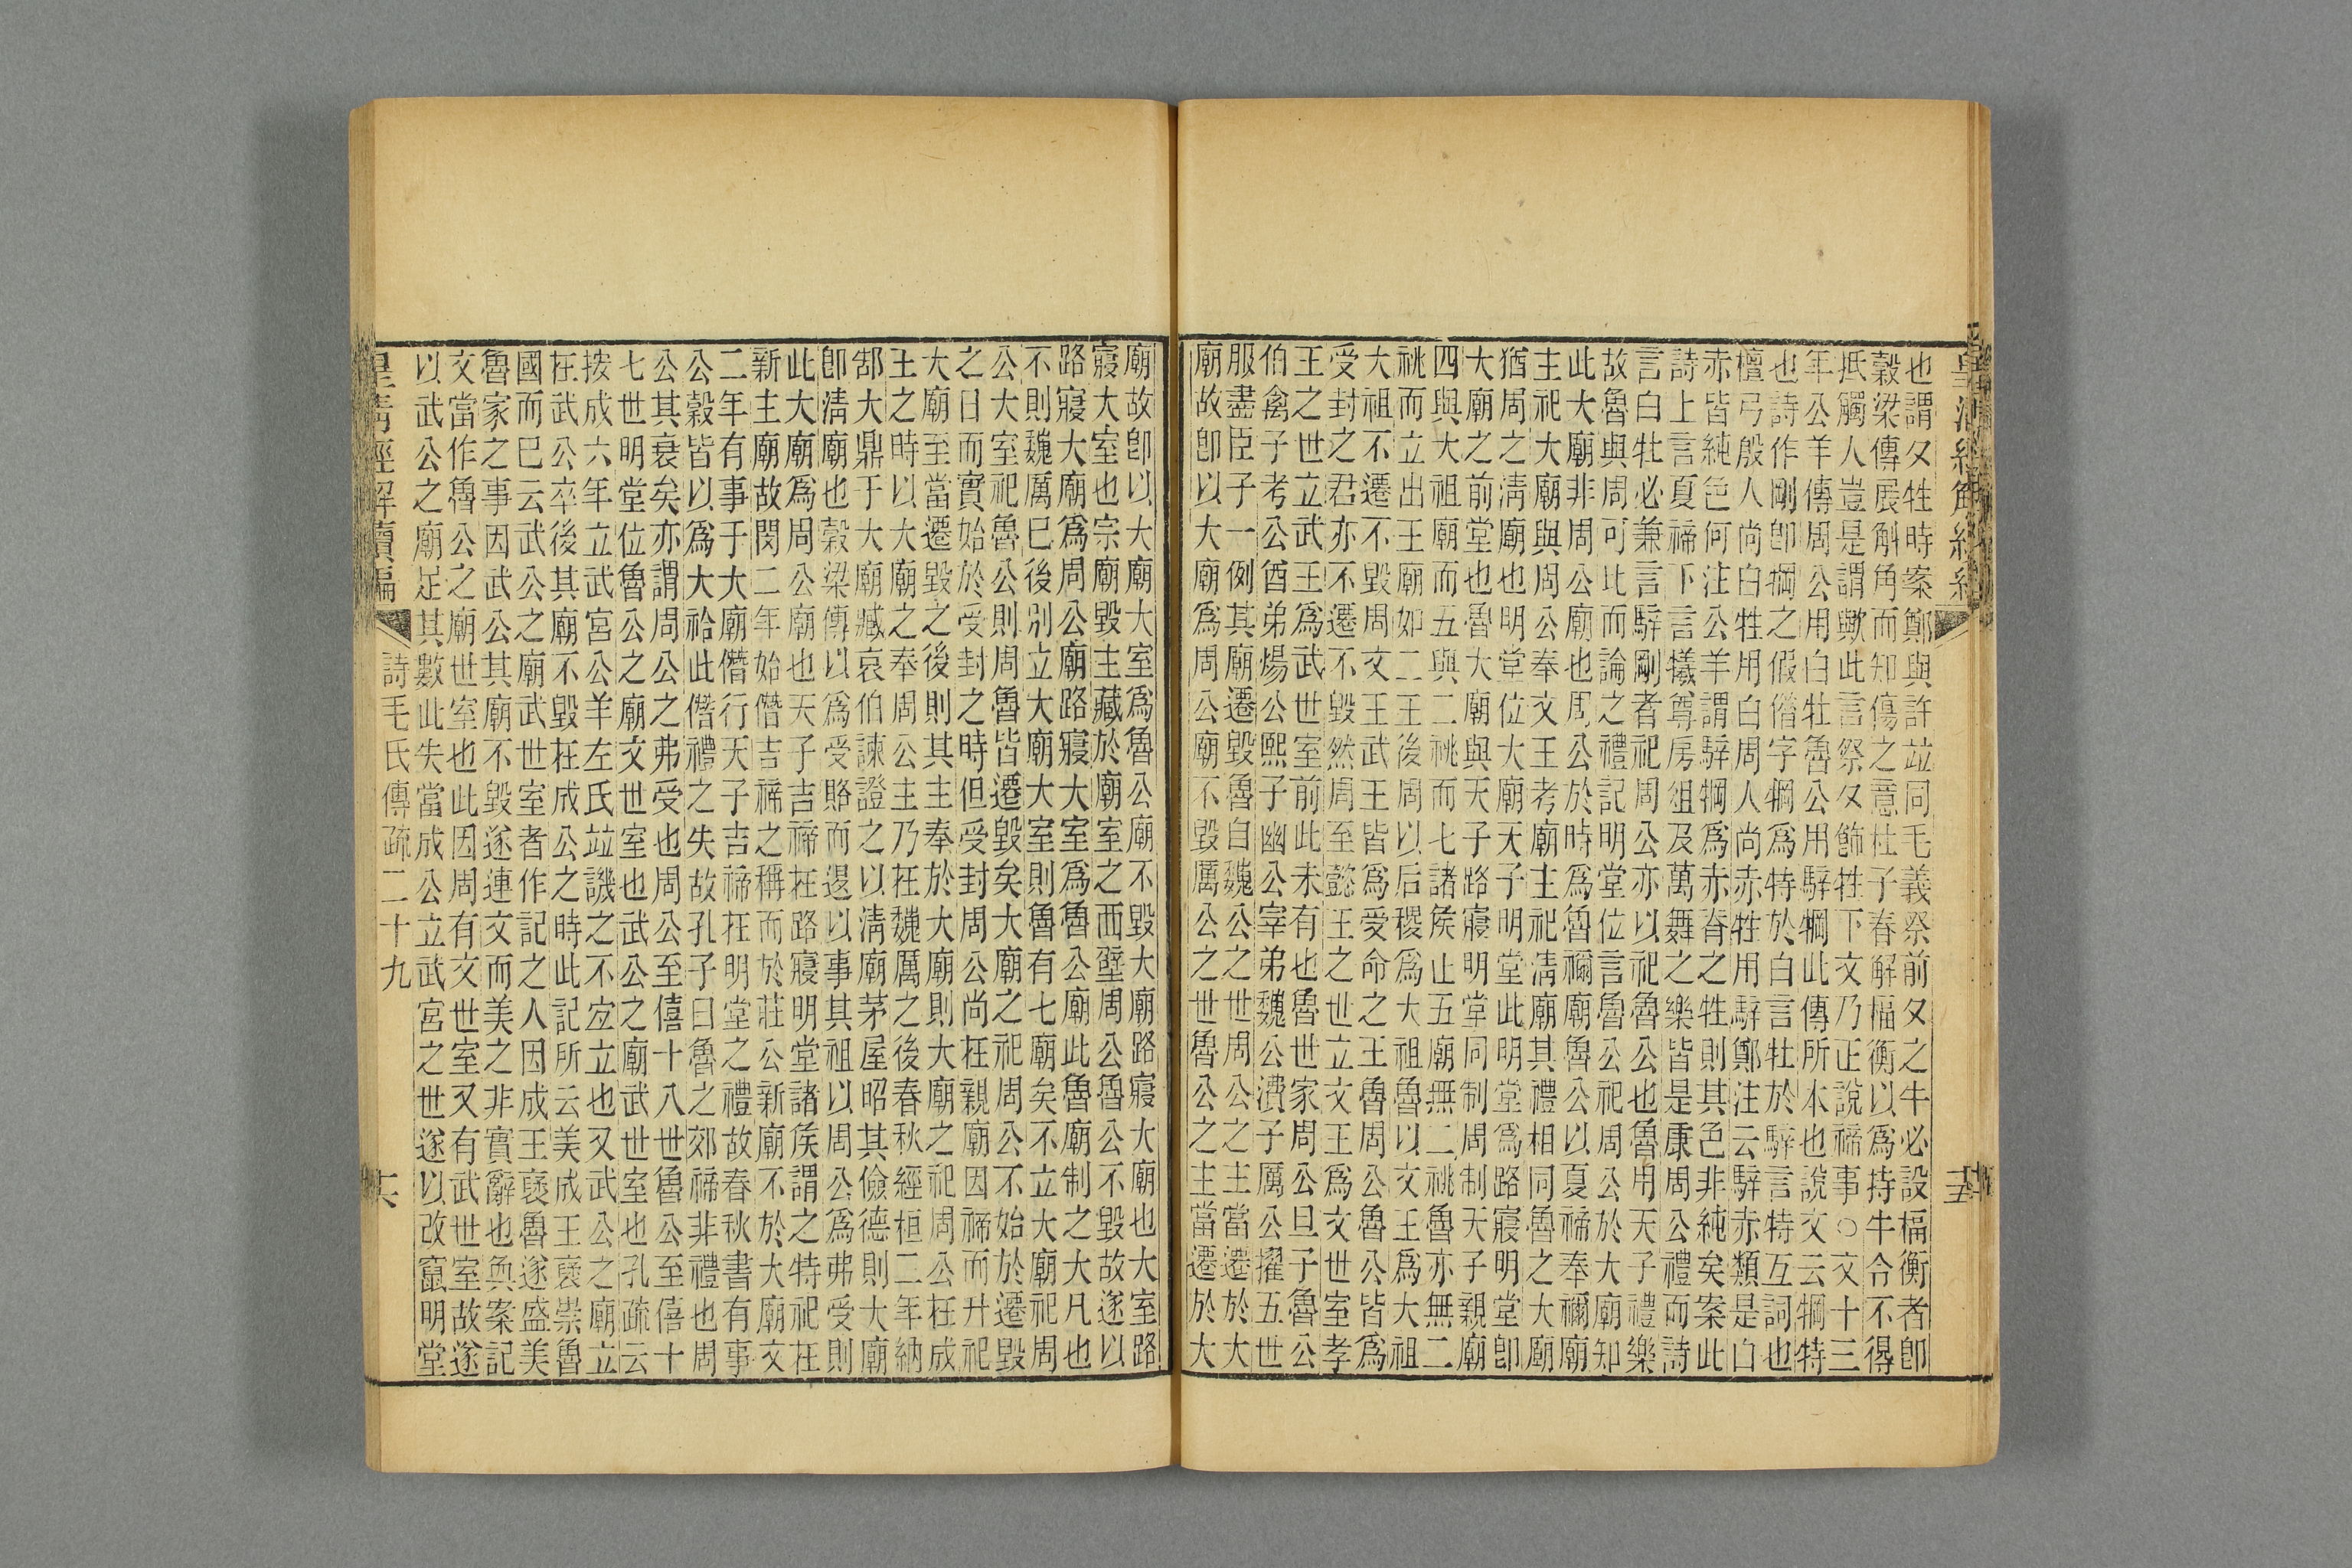 也謂夕牲時案鄭與許竝同毛義祭前夕之牛必設楅衡者卽
穀梁傳展斛角而知傷之意杜子春解楅衡以爲持牛令不得
抵觸人豈是謂歟此言祭夕飾牲下文乃正說禘事○文十三
年公羊傳周公用白牡魯公用騂犅此傳所本也說文云犅特
也詩作剛卽犅之假借字犅爲特於白言牡於騂言特互詞也
檀弓殷人尚白牲用白周人尚赤牲用騂鄭注云騂赤類是白
赤皆純色何注公羊謂騂犅爲赤脊之牲則其色非純矣案此
詩上言夏禘下言犧尊房俎及萬舞之樂皆是康周公禮而詩
言白牡必兼言騂剛者祀周公亦以祀魯公也魯用天子禮樂
故魯與周可此而論之禮記明堂位言魯公祀周公於大廟知
此大廟非周公廟也周公於時爲魯禰廟魯公以夏禘奉禰廟
主祀大廟與周公奉文王考廟主祀淸廟其禮相同魯之大廟
猶周之淸廟也明堂位大廟天子明堂此明堂爲路寢明堂卽
大廟之前堂也魯大廟與天子路寢明堂同制周制天子親廟
四與大祖廟而五與二祧而七諸矦止五廟無二祧魯亦無二
祧而立出王廟如二王後周以后稷爲大祖魯以文王爲大祖
大祖不遷不毀周文王武王皆爲受命之王魯周公魯公皆爲
受封之君亦不遷不毀然周至懿王之世立文王爲文世室孝
王之世立武王爲武世室前此未有也魯世家周公旦子魯公
伯禽子考公酋弟煬公熙子幽公宰弟魏公㵒子厲公擢五世
服盡臣子一例其廟遷毀魯自魏公之世周公之主當遷於大
廟故卽以大廟爲周公廟不毀厲公之世魯公之主當遷於大
廟故卽以大廟大室爲魯公廟不毀大廟路寢大廟也大室路
寢大室也宗廟毀主藏於廟室之西壁周公魯公不毀故遂以
路寢大廟爲周公廟路寢大室爲魯公廟此魯廟制之大凡也
不則魏厲巳後別立大廟大室則魯有七廟矣不立大廟祀周
公大室祀魯公則周魯皆遷毀矣大廟之祀周公不始於遷毀
之日而實始於受封之時但受封周公尚在親廟因禘而升祀
大廟至當遷毀之後則其主奉於大廟則大廟之祀周公在成
王之時以大廟之奉周公主乃在魏厲之後春秋經桓二年納
郜大鼎于大廟臧哀伯諫證之以淸廟茅屋昭其儉德則大廟
卽淸廟也穀梁傳以爲受賂而退以事其祖以周公爲弗受則
此大廟爲周公廟也天子吉禘在路寢明堂諸矦謂之特祀在
新主廟故閔二年始僭吉禘之稱而於莊公新廟不於大廟文
二年有事于大廟僭行天子吉禘在明堂之禮故春秋書有事
公穀皆以爲大祫此僭禮之失故孔子曰魯之郊禘非禮也周
公其衰矣亦謂周公之弗受也周公至僖十八世魯公至僖十
七世明堂位魯公之廟文世室也武公之廟武世室也孔疏云
按成六年立武宮公羊左氏竝譏之不宐立也又武公之廟立
在武公卒後其廟不毀在成公之時此記所云美成王襃崇魯
國而巳云武公之廟武世室者作記之人因成王襃魯遂盛美
魯家之事因武公其廟不毀遂連文而美之非實辭也奐案記
文當作魯公之廟世室也此因周有文世室又有武世室故遂
以武公之廟足其數此失當成公立武宮之世遂以改竄明堂
皇淸經解續編
詩毛氏傳疏二十九